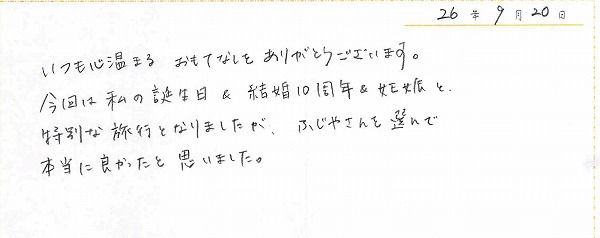 26年 9月 20日
いつも心温まる おもてなしを ありがとうございます。
今回は 私の誕生日 & 結婚10周年 & 妊娠 と、
特別な 旅行となりましたが、 ふじやさんを 選んで
本当に良かったと 思いました。